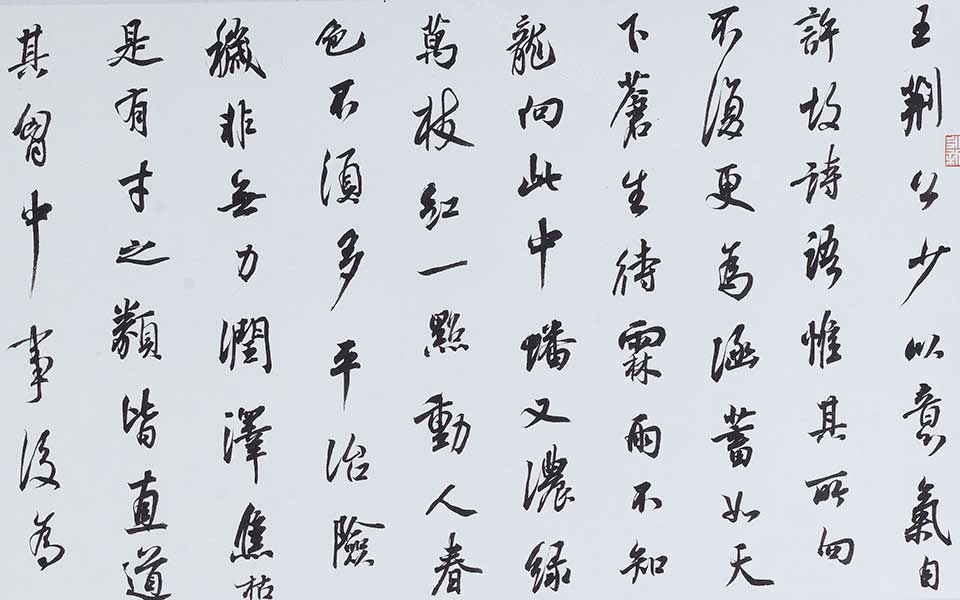 王荊公少以意氣自
許故詩語惟其所向
不復更為涵蓄如天
下蒼生待霖雨不知
龍向此中蟠又濃綠
萬枝紅一點動人春
色不須多平治險
穢非無力潤澤焦枯
是有才之類皆直道
其胷中事後為